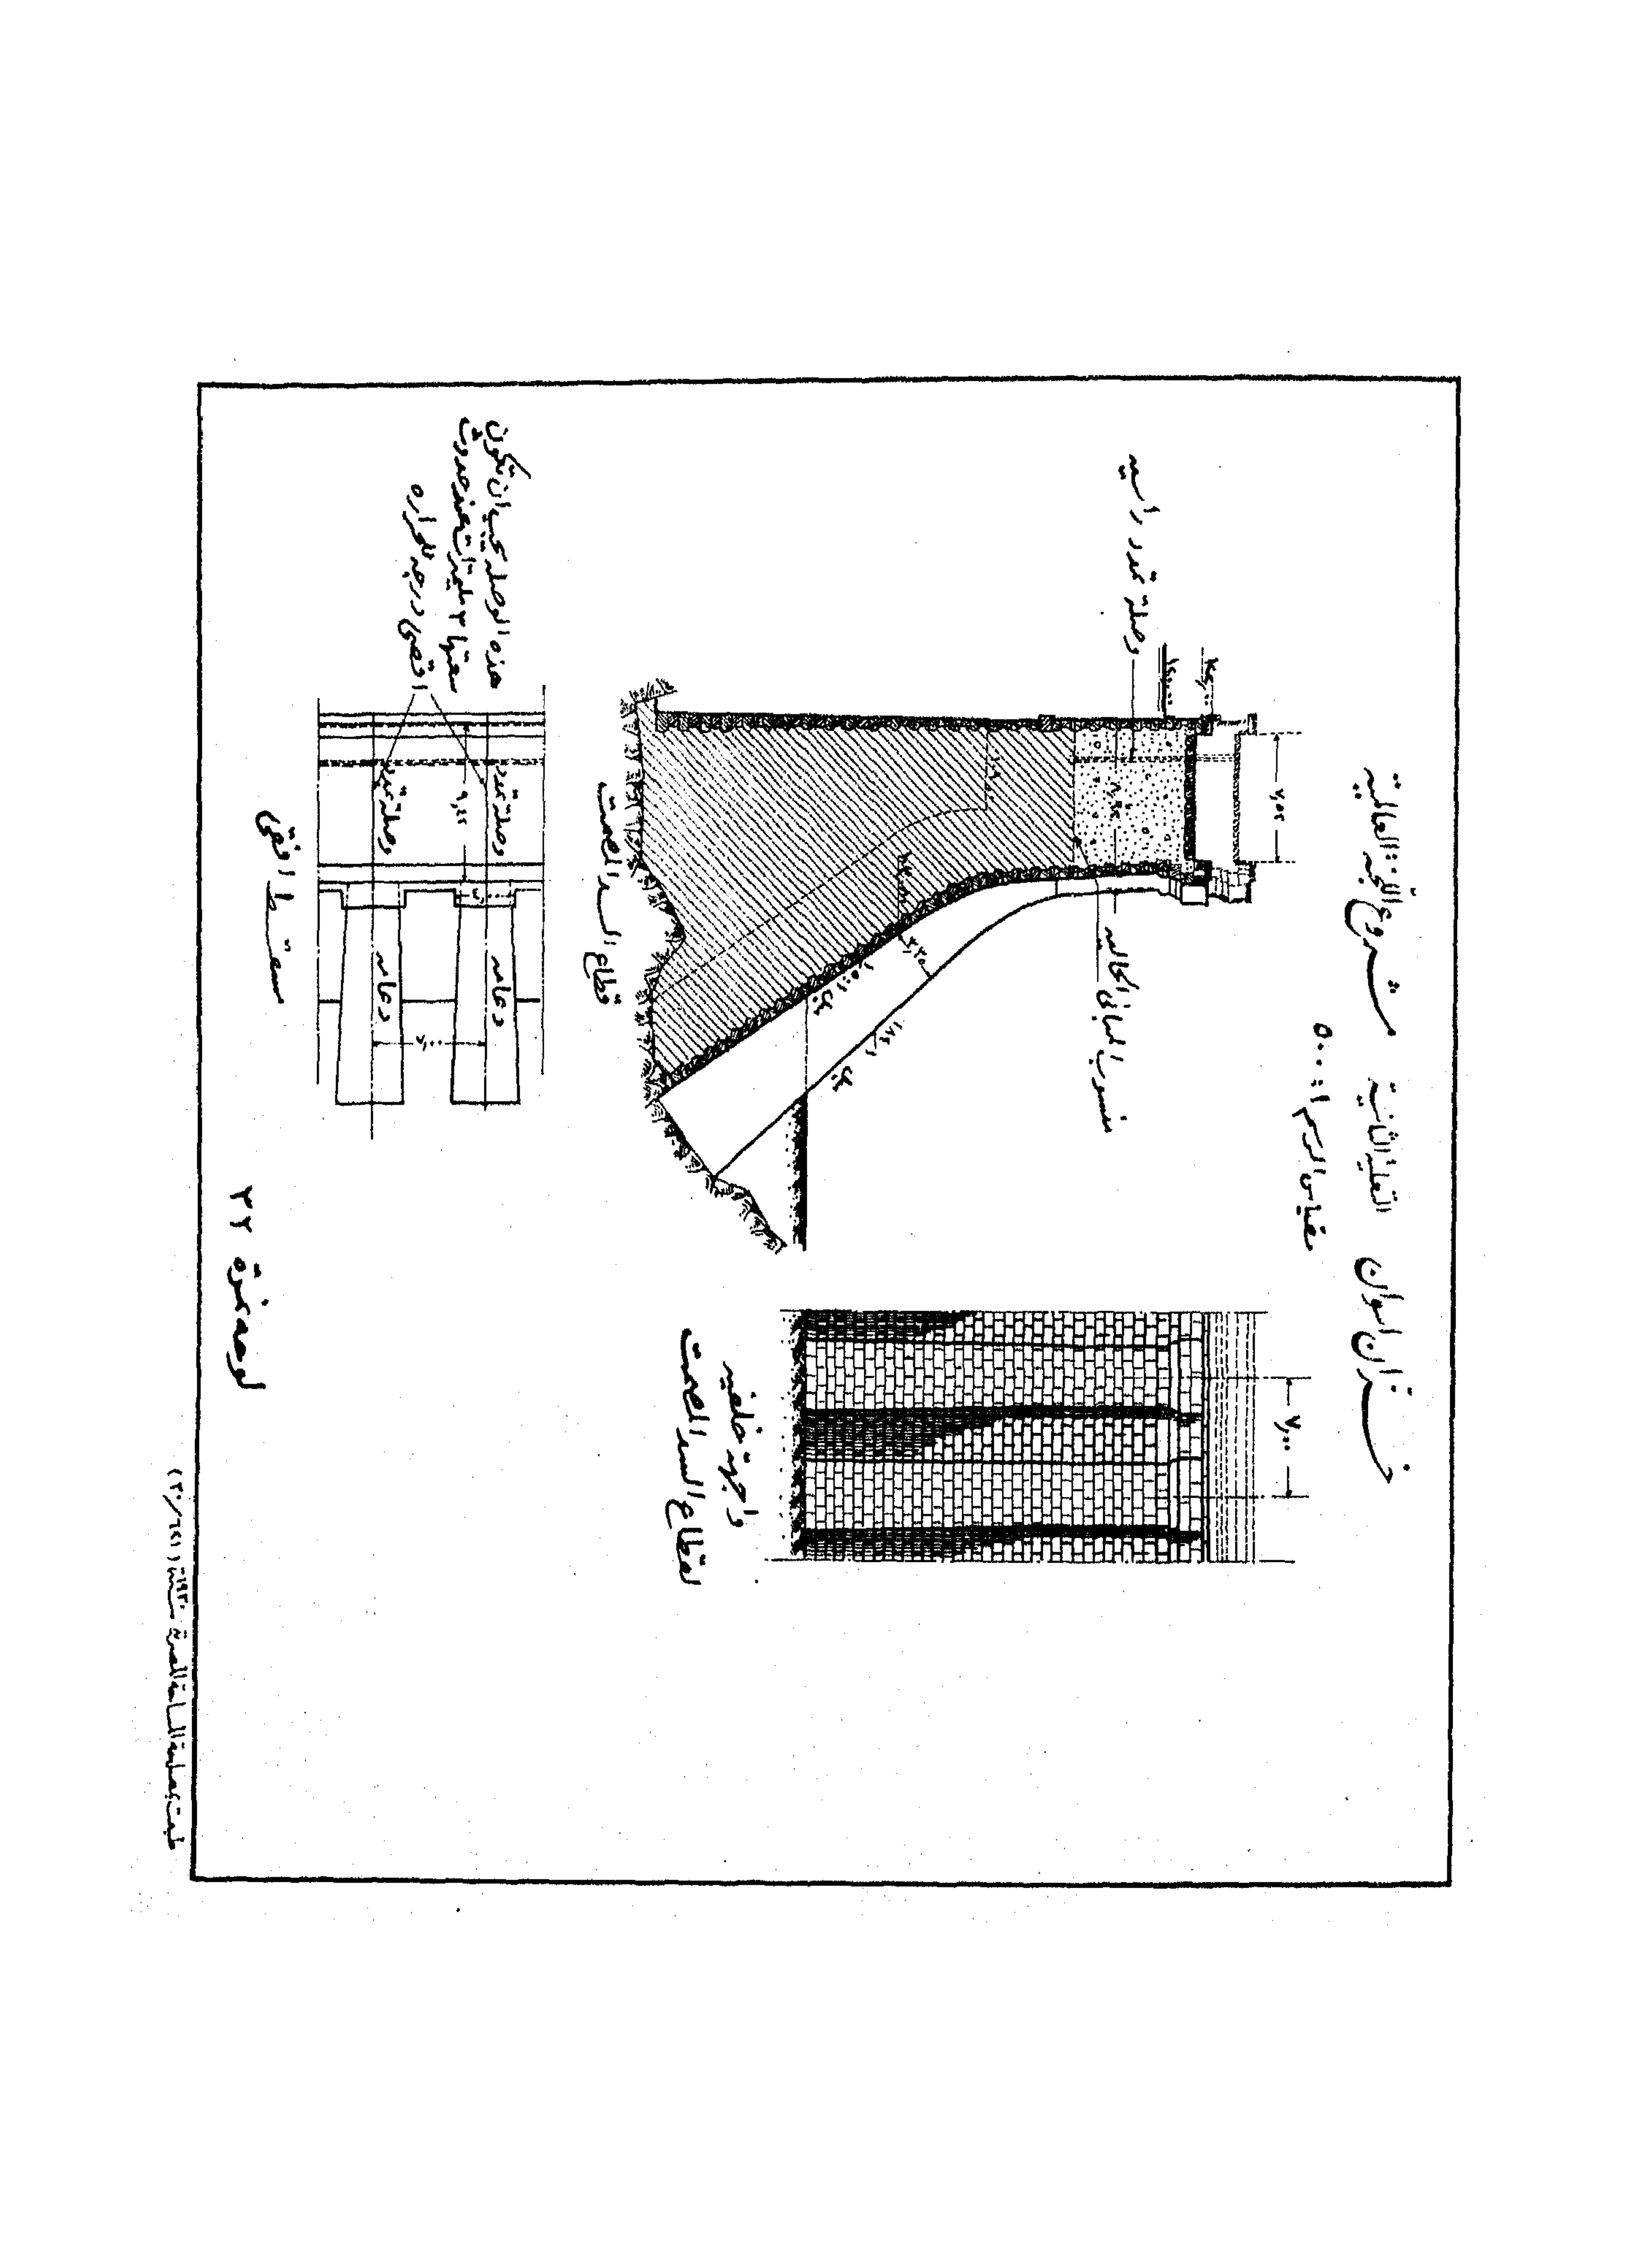 خزان اسوان التعلية الثانية مشروع اللجنة العالمية
مقياس الرسم ١ : ٥٠٠
٧,٥٢
٧,٠٠
وصلة تمدد راسيه
منسوب المباني الحاليه
٣,٢٥
ميل
ميل
قطاع السد المصمت
واجهة خلفيه
لقطاع السد المصمت
هذه الوصله يجب ان تكون
سعتها ٣ مليمترات عند حدوث
اقصى درجة الحراره
وصلة تمدد
وصلة تمدد
دعامه
دعامه
٧,٠٠
مسقط افقى
لوحة نمرة ٢٢
طبعت بمصلحة المساحة المصرية سنة ١٩٣٠